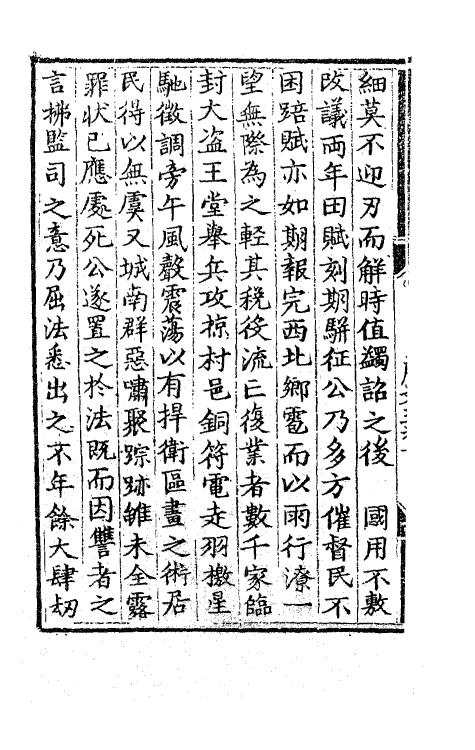 細莫不迎刃而解時值蠲詔之後　國用不敷
改議両年田賦刻期駢征公乃多方催督民不
困踣賦亦如期報完西北鄉雹而以雨行潦一
望無際為之輕其税役流亡復業者數千家臨
封大盗王堂舉兵攻掠村邑銅符電走羽檄星
馳徵調旁午風聲震蕩以有捍衛區畫之術居
民得以無虞又城南群惡嘯聚踪跡雖未全露
罪狀已應處死公遂置之於法既而因讐者之
言拂監司之意乃屈法悉出之不年餘大肆刼